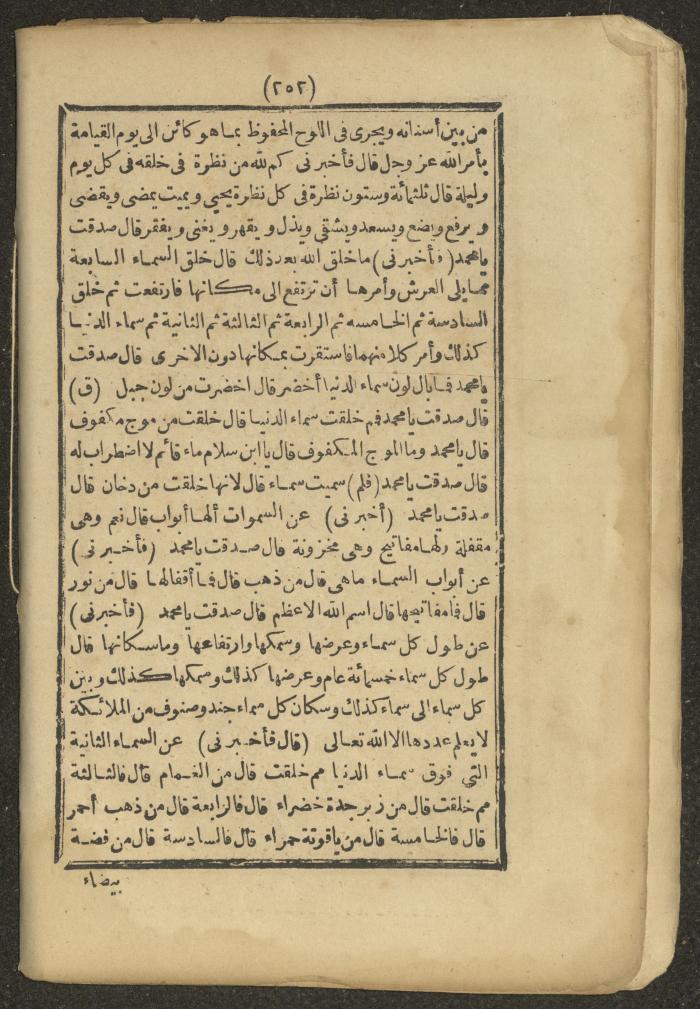 (٢٥٢)
من بين أسنانه ويجرى فى اللوح المحفوظ بما هو كائن الى يوم القيامة
بأمر الله عز وجل قال فأخبرنى كم لله من نظرة فى خلقه فى كل يوم
وليلة قال ثلثمائة وستون نظرة فى كل نظرة يحيى ويميت يمضى ويقضى
ويرفع ويضع ويسعد ويشقى ويذل ويقهر ويغنى ويفقر قال صدقت
يا محمد (فأخبرنى) ما خلق الله بعد ذلك قال خلق السماء السابعة
مما يلى العرش وأمرها أن ترتفع الى مكانها فارتفعت ثم خلق
السادسة ثم الخامسه ثم الرابعة ثم الثالثة ثم الثانية ثم سماء الدنيا
كذلك وأمر كلا منهما فاستقرت بمكانها دون الاخرى قال صدقت
يا محمد فما بال لون سماء الدنيا أخضر قال اخضرت من لون جبل (ق)
قال صدقت يا محمد فم خلقت سماء الدنيا قال خلقت من موج مكفوف
قال يا محمد وما الموج المكفوف قال يا ابن سلام ماء قائم لا اضطراب له
قال صدقت يا محمد (فلم) سميت سماء قال لانها خلقت من دخان قال
صدقت يا محمد (أخبرنى) عن السموات ألها أبواب قال نعم وهى
مقفلة ولها مفاتيح وهى مخزونة قال صدقت يا محمد (فأخبرنى)
عن أبواب السماء ما هى قال من ذهب قال فما أقفالها قال من نور
قال فما مفاتيحها قال اسم الله الاعظم قال صدقت يا محمد (فأخبرنى)
عن طول كل سماء وعرضها وسمكها وارتفاعها وما سكانها قال
طول كل سماء خمسمائة عام وعرضها كذلك وسمكها كذلك وبين
كل سماء الى سماء كذلك وسكان كل سماء جند وصنوف من الملائكة
لا يعلم عددها الا الله تعالى (قال فأخبرنى) عن السماء الثانية
التي فوق سماء الدنيا مم خلقت قال من الغمام قال فالثالثة
مم خلقت قال من زبرجدة خضراء قال فالرابعة قال من ذهب أحمر
قال فالخامسة قال من ياقوتة حمراء قال فالسادسة قال من فضة
بيضاء